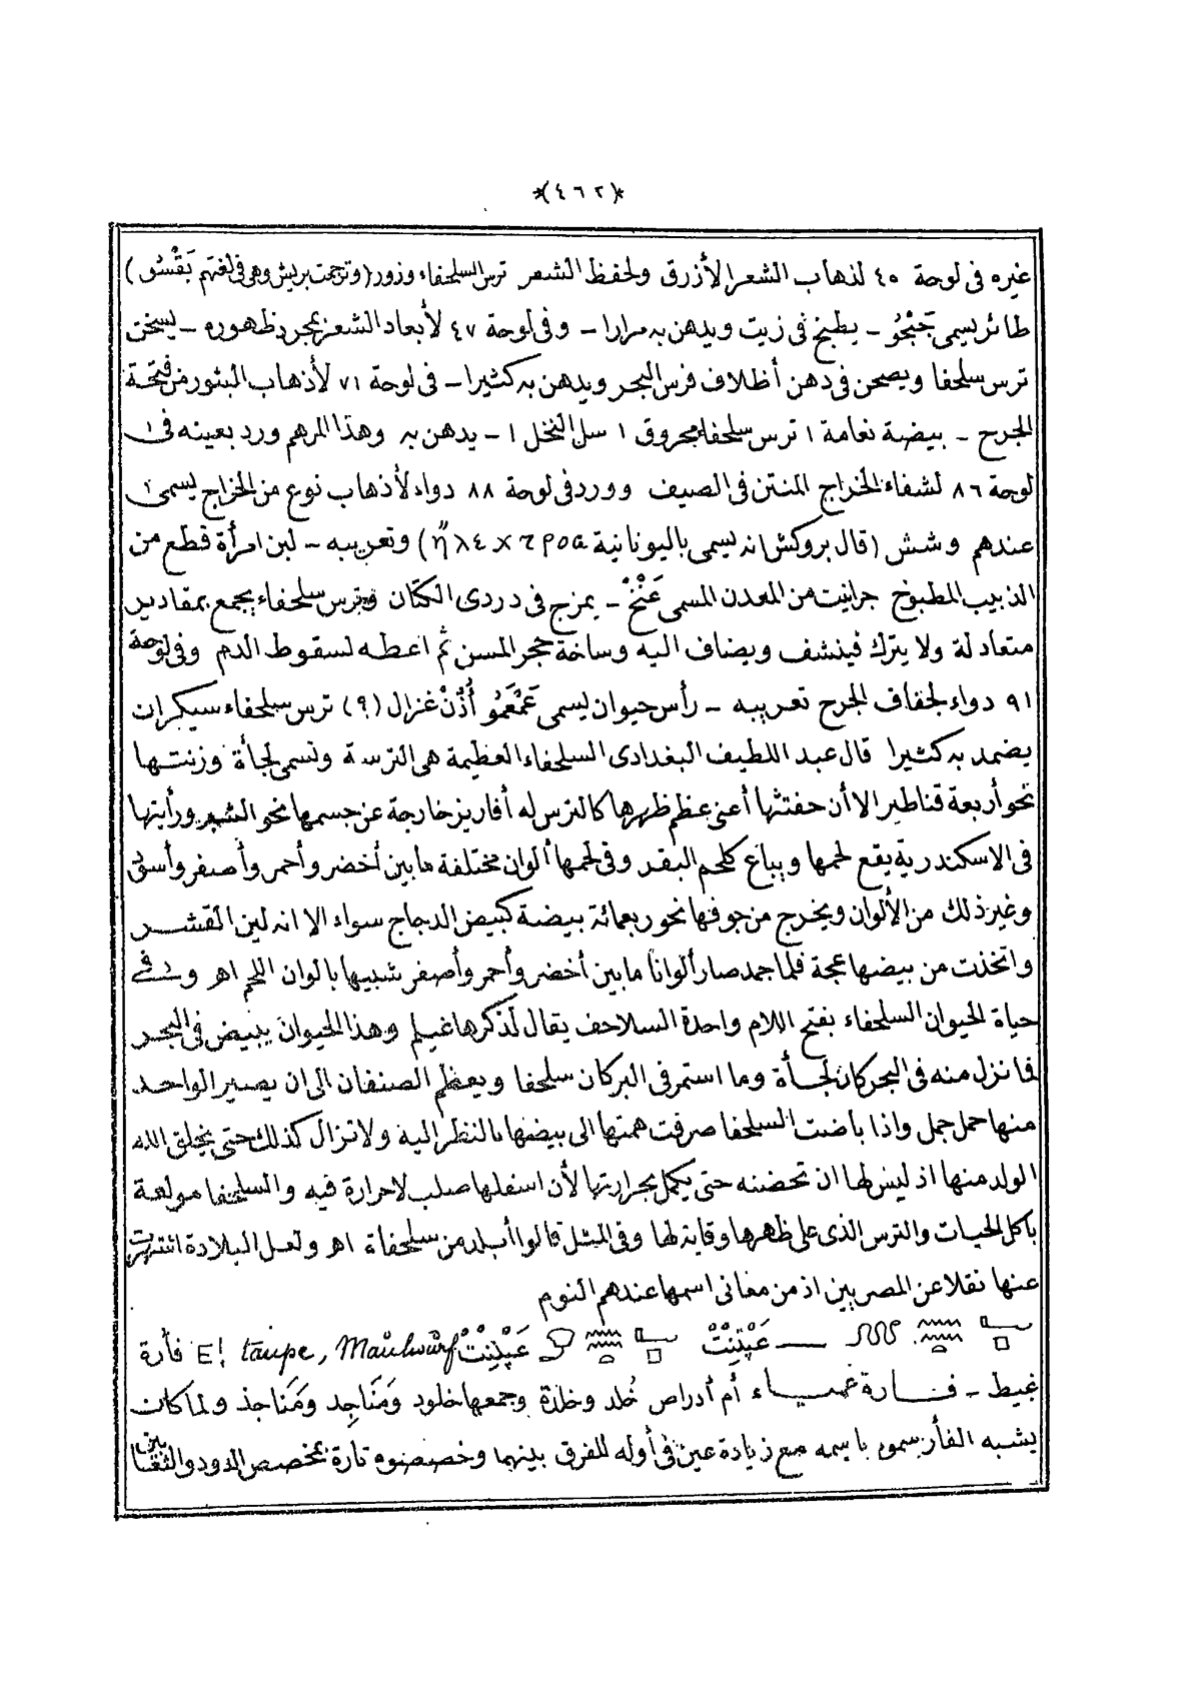 *(٤٦٢)*
غيره فى لوحة ٤٥ لذهاب الشعر الأزرق ولحفظ الشعر ترس السلحفاء وزور (وترجمت بريش وهى فى لغتهم يَقْسُو)
طائر يسمى جَبْجُو ـ يطبخ فى زيت ويدهن به مرارا ـ وفى لوحة ٤٧ لأبعاد الشعر بمجرد ظهوره ـ يسخن
ترس سلحفا ويصحن فى دهن أظلاف فرس البحر ويدهن به كثيرا ـ فى لوحة ٧١ لأذهاب البثور من فتحة
الجرح ـ بيضة نعامة ١ ترس سلحفا محروق ١ سل النخل ١ ـ يدهن به وهذا المرهم ورد بعينه فى
لوحة ٨٦ لشفاء الخراج المنتن فى الصيف وورد فى لوحة ٨٨ دواء لأذهاب نوع من الخراج يسمى
عندهم وشش (قال بروكش انه يسمى باليونانية) وتعريبه ـ لبن امرأة قطع من
الذبيب المطبوخ جرانيت من المعدن المسمى عَنْخْ ـ يمزج فى دردى الكتان وترس سلحفاء يجمع بمقادير
متعادلة ولا يترك فينشف ويضاف اليه وساخة حجر المسن ثم اعطه لسقوط الدم وفى لوحة
٩١ دواء لجفاف الجرح تعريبه ـ رأس حيوان يسمى عَمْعَمُو أُذُنْ غزال (؟) ترس سلحفاء سيكران
يضمد به كثيرا قال عبد اللطيف البغدادى السلحفاء العظيمة هى الترسة وتسمى لجأة وزنتها
نحو أربعة قناطير الا أن حفتثها أعنى عظم ظهرها كالترس له أفاريز خارجة عن جسمها نحو الشبر ورأيتها
فى الاسكندرية يقع لحمها ويباع كلحم البقر وفى لحمها ألوان مختلفة ما بين أخضر وأحمر وأصفر وأسود
وغير ذلك من الألوان ويخرج من جوفها نحو ربعمائة بيضة كبيض الدجاج سواء الا انه لين القشر
واتخذت من بيضها عجة فلما جمد صار ألوانا ما بين أخضر وأحمر وأصفر شبيها بالوان اللحم اهـ وفى
حياة الحيوان السلحفاء بفتح اللام واحدة السلاحف يقال لذكرها غيلم وهذا الحيوان يبيض فى البحر
فما نزل منه فى البحر كان لجأة وما استمر فى البر كان سلحفا ويعظم الصنفان الى ان يصير الواحد
منها حمل جمل واذا باضت السلحفا صرفت همتها الى بيضها بالنظر اليه ولا تزال كذلك حتى يخلق الله
الولد منها اذ ليس لها ان تحضنه حتى يكمل بحرارتها لأن اسفلها صلب لاحرارة فيه والسلحفا مولعة
باكل الحيات والترس الذى على ظهرها وقاية لها وفى المثل قالوا أبلد من سلحفاة اهـ ولعل البلادة اشتهرت
عنها نقلا عن المصريين اذ من معانى اسمها عندهم النوم
عَپْنِنْتْ عَپْنِنْتْ E! taupe, Maulwurf فأرة
غيط ـ فـارة عمياء أم أدراص خُلد وخلدة وجمعها خلود ومَنَاجِد ومَنَاجذ ولما كان
يشبه الفأر سموه باسمه مع زيادة عين فى أوله للفرق بينهما وخصصوه تارة بمخصص الدود والثعابين